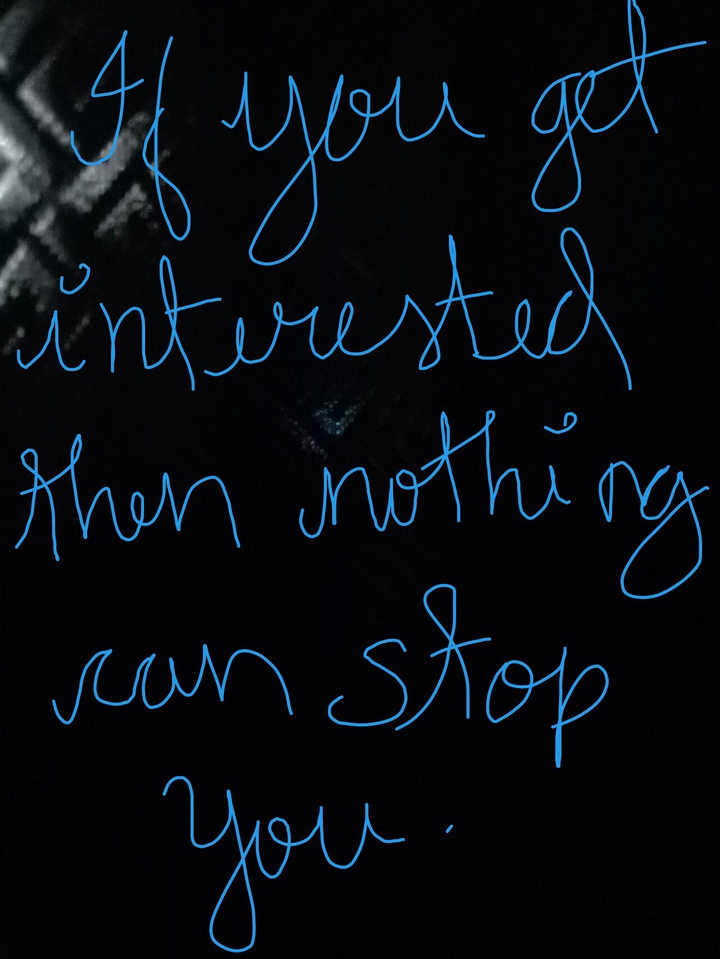 If you get
interested
then nothing
can stop
you.